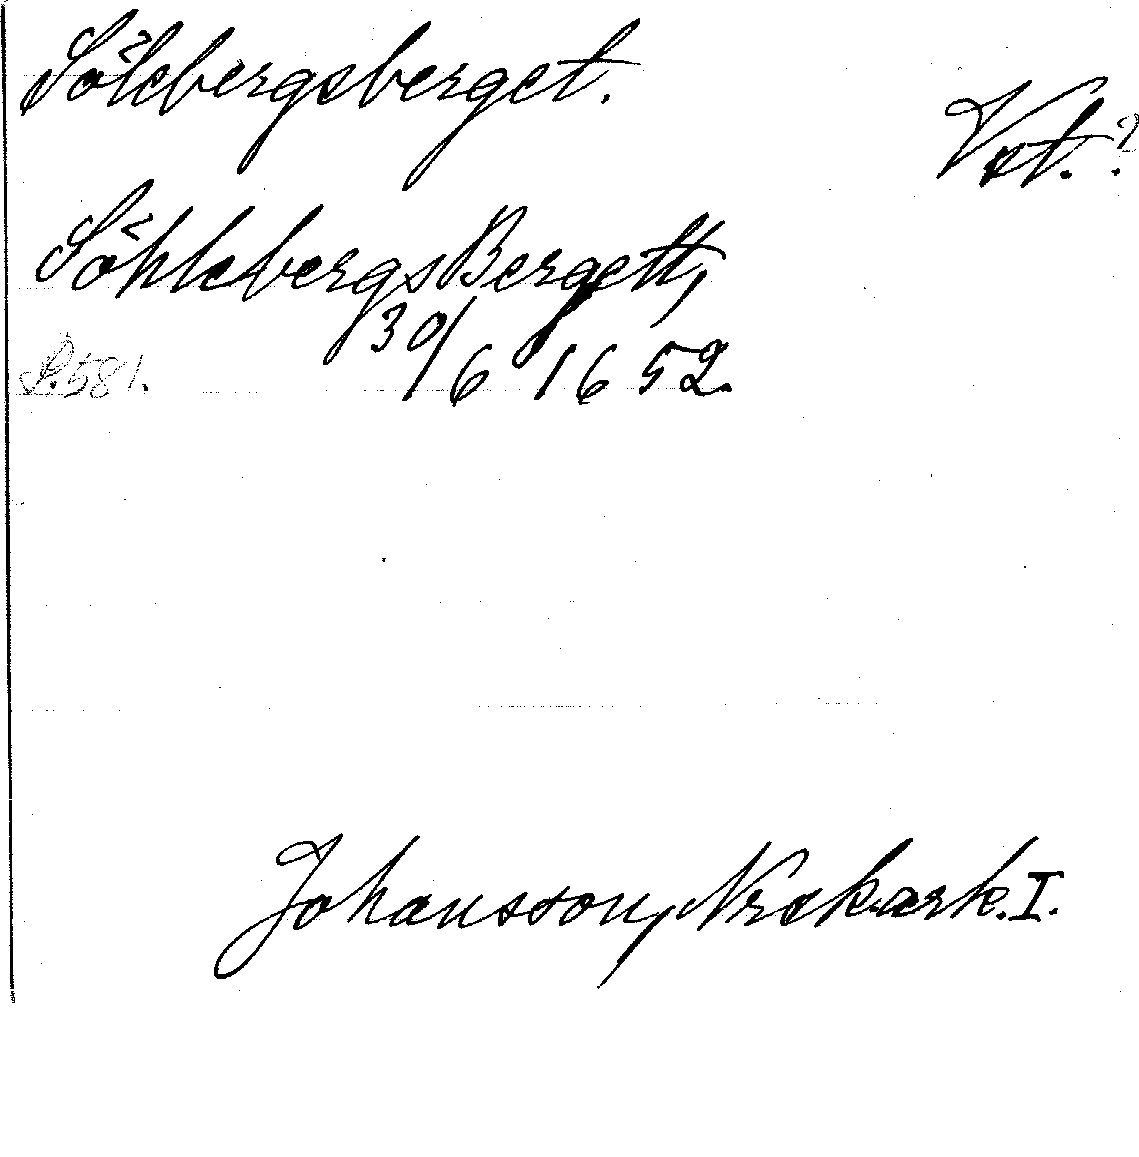 Sölebergsberget.
Vrt.?
SöhlebergsBergett,
30/6 1652.
S. 581.
Johansson, Nrakark. I.